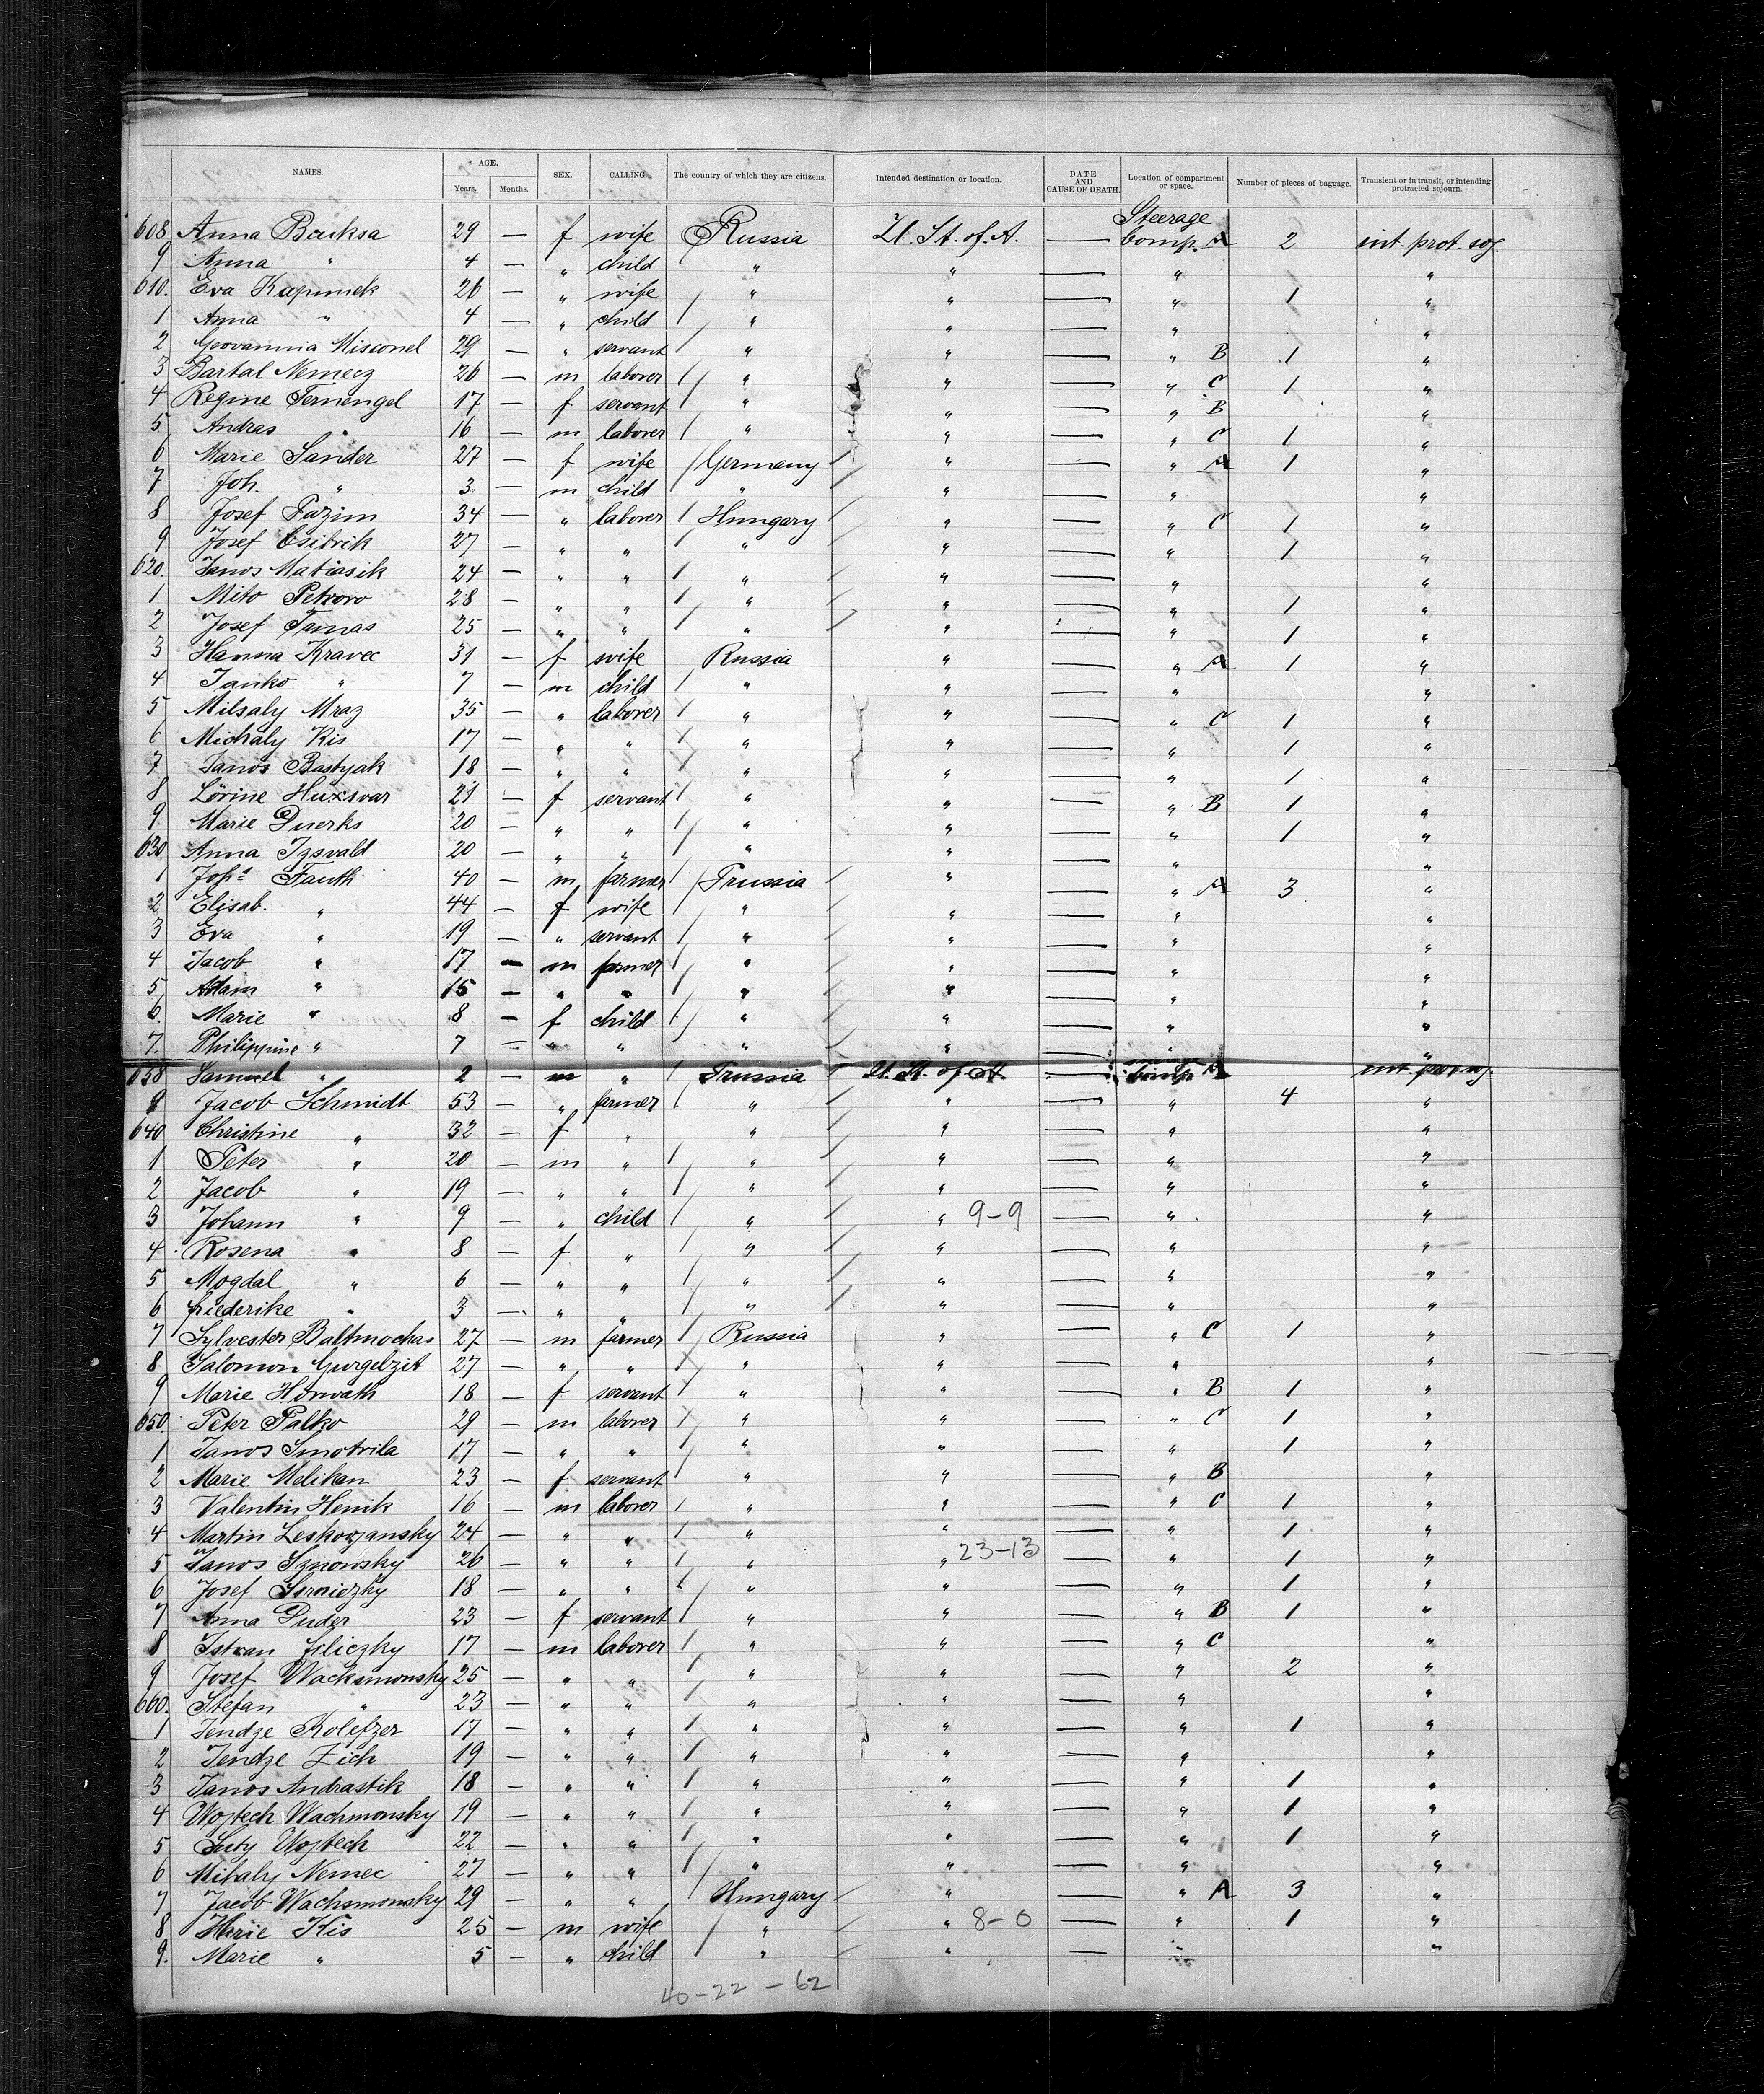 NAMES. AGE. Years. Months. SEX. CALLING. The country of which they are citizens. Intended destination or location. DATE AND CAUSE OF DEATH. Location of compartment or space. Number of pieces of baggage. Transient or in transit, or intending protracted sojourn.
Steerage
608 Anna Bruksa 29 — f wife Russia U. St. of. A. — Comp. A 2 int. prot. soj.
9 Anna " 4 — " child " " — " "
610. Eva Kapunek 26 — " wife " " — " 1 "
1 Anna " 4 — " child " " — " "
2 Geovannia Misconel 29 — " servant " " — " B 1 "
3 Bartal Nemecz 26 — m laborer " " — " C 1 "
4 Regine Ternengel 17 — f servant " " — " B "
5 Andras " 16 — m laborer " " — " C 1 "
6 Marie Sander 27 — f wife Germany " — " A 1 "
7 Joh. " 3 — m child " " — " "
8 Josef Pazim 34 — " laborer Hungary " — " C 1 "
9 Josef Csibrik 27 — " " " " — " 1 "
620. Janos Matiasik 24 — " " " " — " "
1 Mito Petrovo 28 — " " " " — " 1 "
2 Josef Tamas 25 — " " " " — " 1 "
3 Hanna Kravec 31 — f wife Russia " — " A 1 "
4 Janko " 7 — m child " " — " "
5 Milsaly Mraz 35 — " laborer " " — " C 1 "
6 Michaly Kis 17 — " " " " — " 1 "
7 Janos Bastyak 18 — " " " " — " 1 "
8 Lörine Huxsvar 21 — f servant " " — " B 1 "
9 Marie Duerks 20 — " " " " — " 1 "
630 Anna Izsvald 20 — " " " " — " "
1 Joh.s Fauth 40 — m farmer Prussia " — " A 3 "
2 Elisab. " 44 — f wife " " — " "
3 Eva " 19 — " servant " " — " "
4 Jacob " 17 — m farmer " " — " "
5 Adam " 15 — " " " " — " "
6. Marie " 8 — f child " " — " "
7. Philippine " 7 — " " " " — " "
638 Samuel " 2 — m " Prussia U. St. of A. — Comp A int. prot. soj.
9 Jacob Schmidt 53 — " farmer " " — " 4 "
640 Christine " 32 — f " " " — " "
1 Peter " 20 — m " " " — " "
2 Jacob " 19 — " " " " — " "
3 Johann " 9 — " child " " 9-9 — " "
4 Rosena " 8 — f " " " — " "
5 Mogdal " 6 — " " " " — " "
6 friederike " 3 — " " " " — " "
7 Sylvester Baltmochas 27 — m farmer Russia " — " C 1 "
8 Salomon Gurgelzit 27 — " " " " — " "
9 Marie Horwath 18 — f servant " " — " B 1 "
650. Peter Palko 29 — m laborer " " — " C 1 "
1 Janos Smotrila 17 — " " " " — " 1 "
2 Marie Melikan 23 — f servant " " — " B "
3 Valentin Henik 16 — m laborer " " — " C 1 "
4 Martin Leskowjansky 24 — " " " " — " 1 "
5 Janos Sznowsky 26 — " " " " 23-13 — " 1 "
6 Josef 18 — " " " " — " 1 "
7 Anna Duder 23 — f servant " " — " B 1 "
8 Istvan Jiliczky 17 — m laborer " " — " C "
9 Josef Wacksmonsky 25 — " " " " — " 2 "
660. Stefan " 23 — " " " " — " "
1 Jendze Kolefzer 17 — " " " " — " 1 "
2 Jendze Zich 19 — " " " " — " "
3 Janos Andrastik 18 — " " " " — " 1 "
4 Wojtech Wachmonsky 19 — " " " " — " 1 "
5 Suty Wojtech 22 — " " " " — " 1 "
6 Mihaly Nemec 27 — " " " " — " "
7 Jacob Wachsmonsky 29 — " " Hungary " — " A 3 "
8 Kis 25 — m wife " " 8-0 — " 1 "
9. Marie " 5 — " child " " — " "
40-22-62